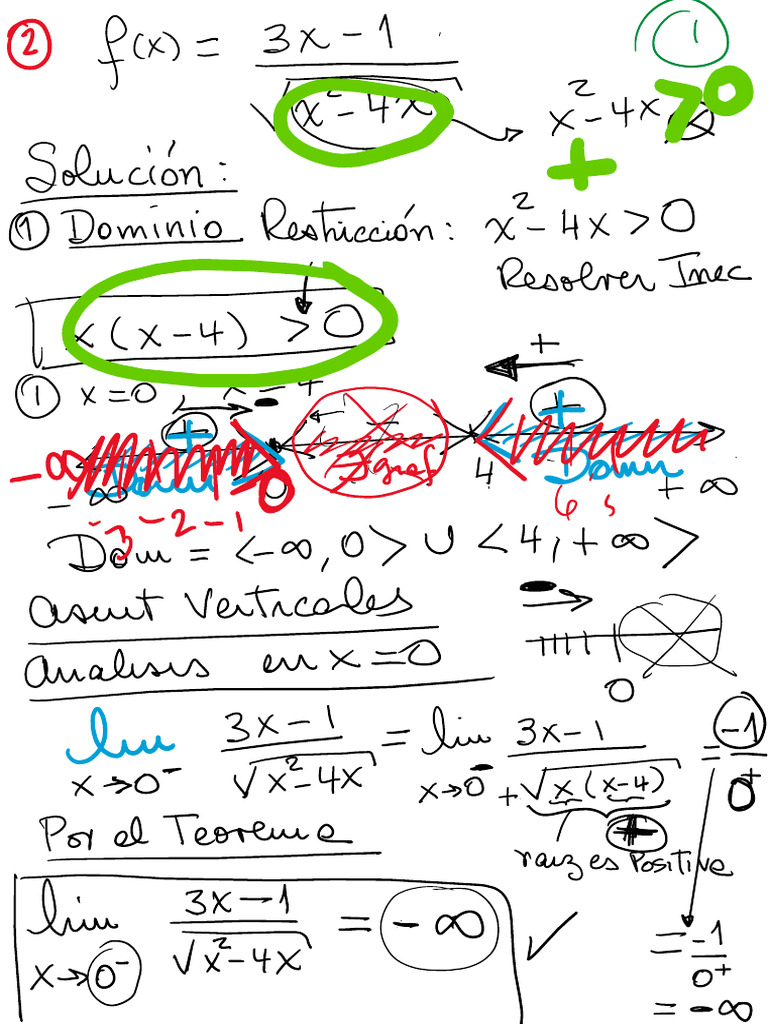 ② f(x) = (3x-1)/√(x²-4x) ①
x²-4x > 0
+
Solución:
① Dominio Restricción: x²-4x > 0
Resolver Inec
x(x-4) > 0
① x=0 x=4 +
+ - - +
-∞ 0 4 Dom
-∞ 6 5 +∞
-3 -2 -1
Dom = <-∞,0> ∪ <4,+∞>
Asint Verticales
Analisis en x=0
0
lim (3x-1)/√(x²-4x) = lim (3x-1)/√(x(x-4)) = -1/0⁺
x→0⁻ x→0⁻ + +
Por el Teorema
raiz es Positiva
lim (3x-1)/√(x²-4x) = -∞
x→0⁻
= -1/0⁺
= -∞